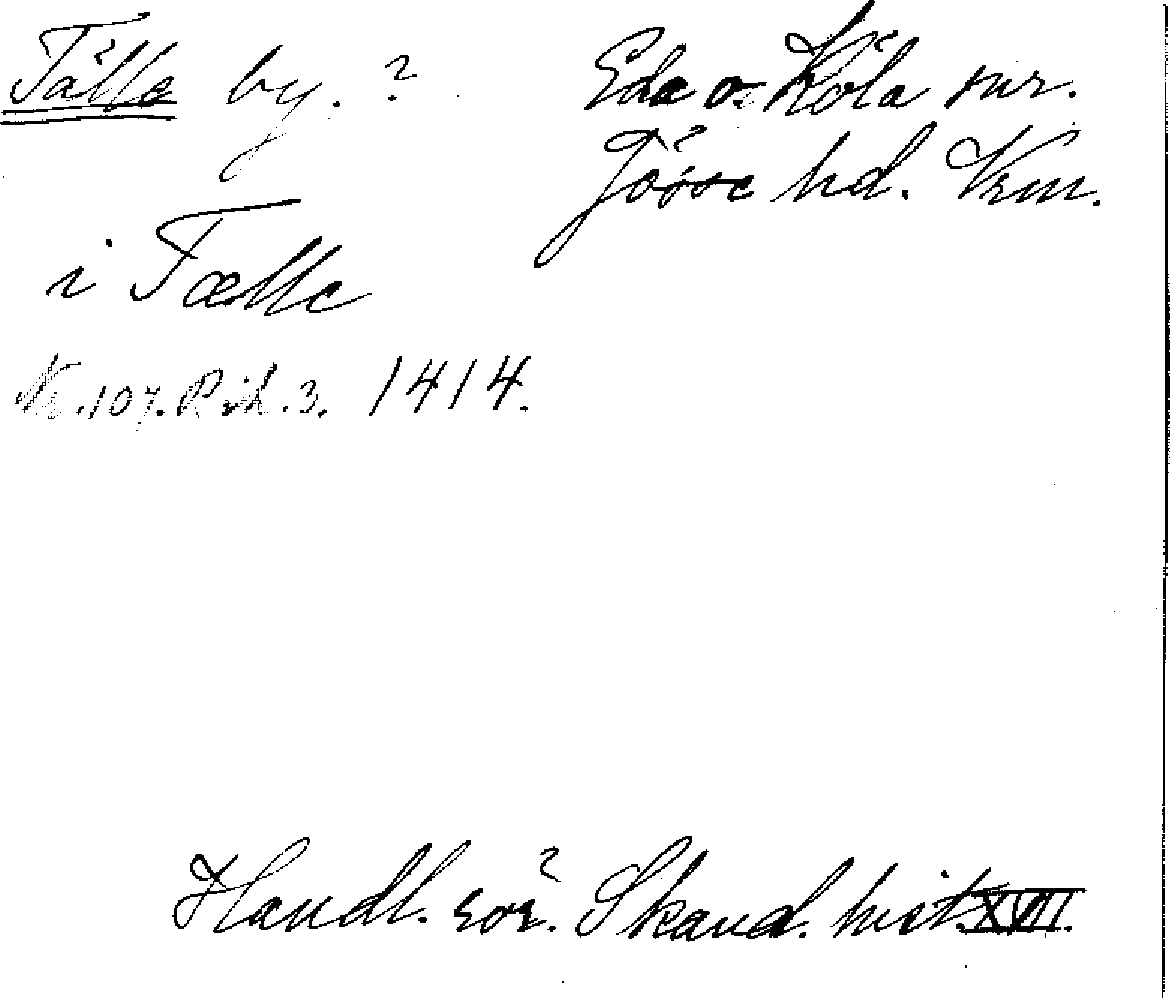 Tälle by. ?
Eda o. Köla snr.
Jösse hd. Vrm.
i Tælle
Nr. 107. Rih. 3. 1414.
Handl. rör. Skand. hist. XVII.